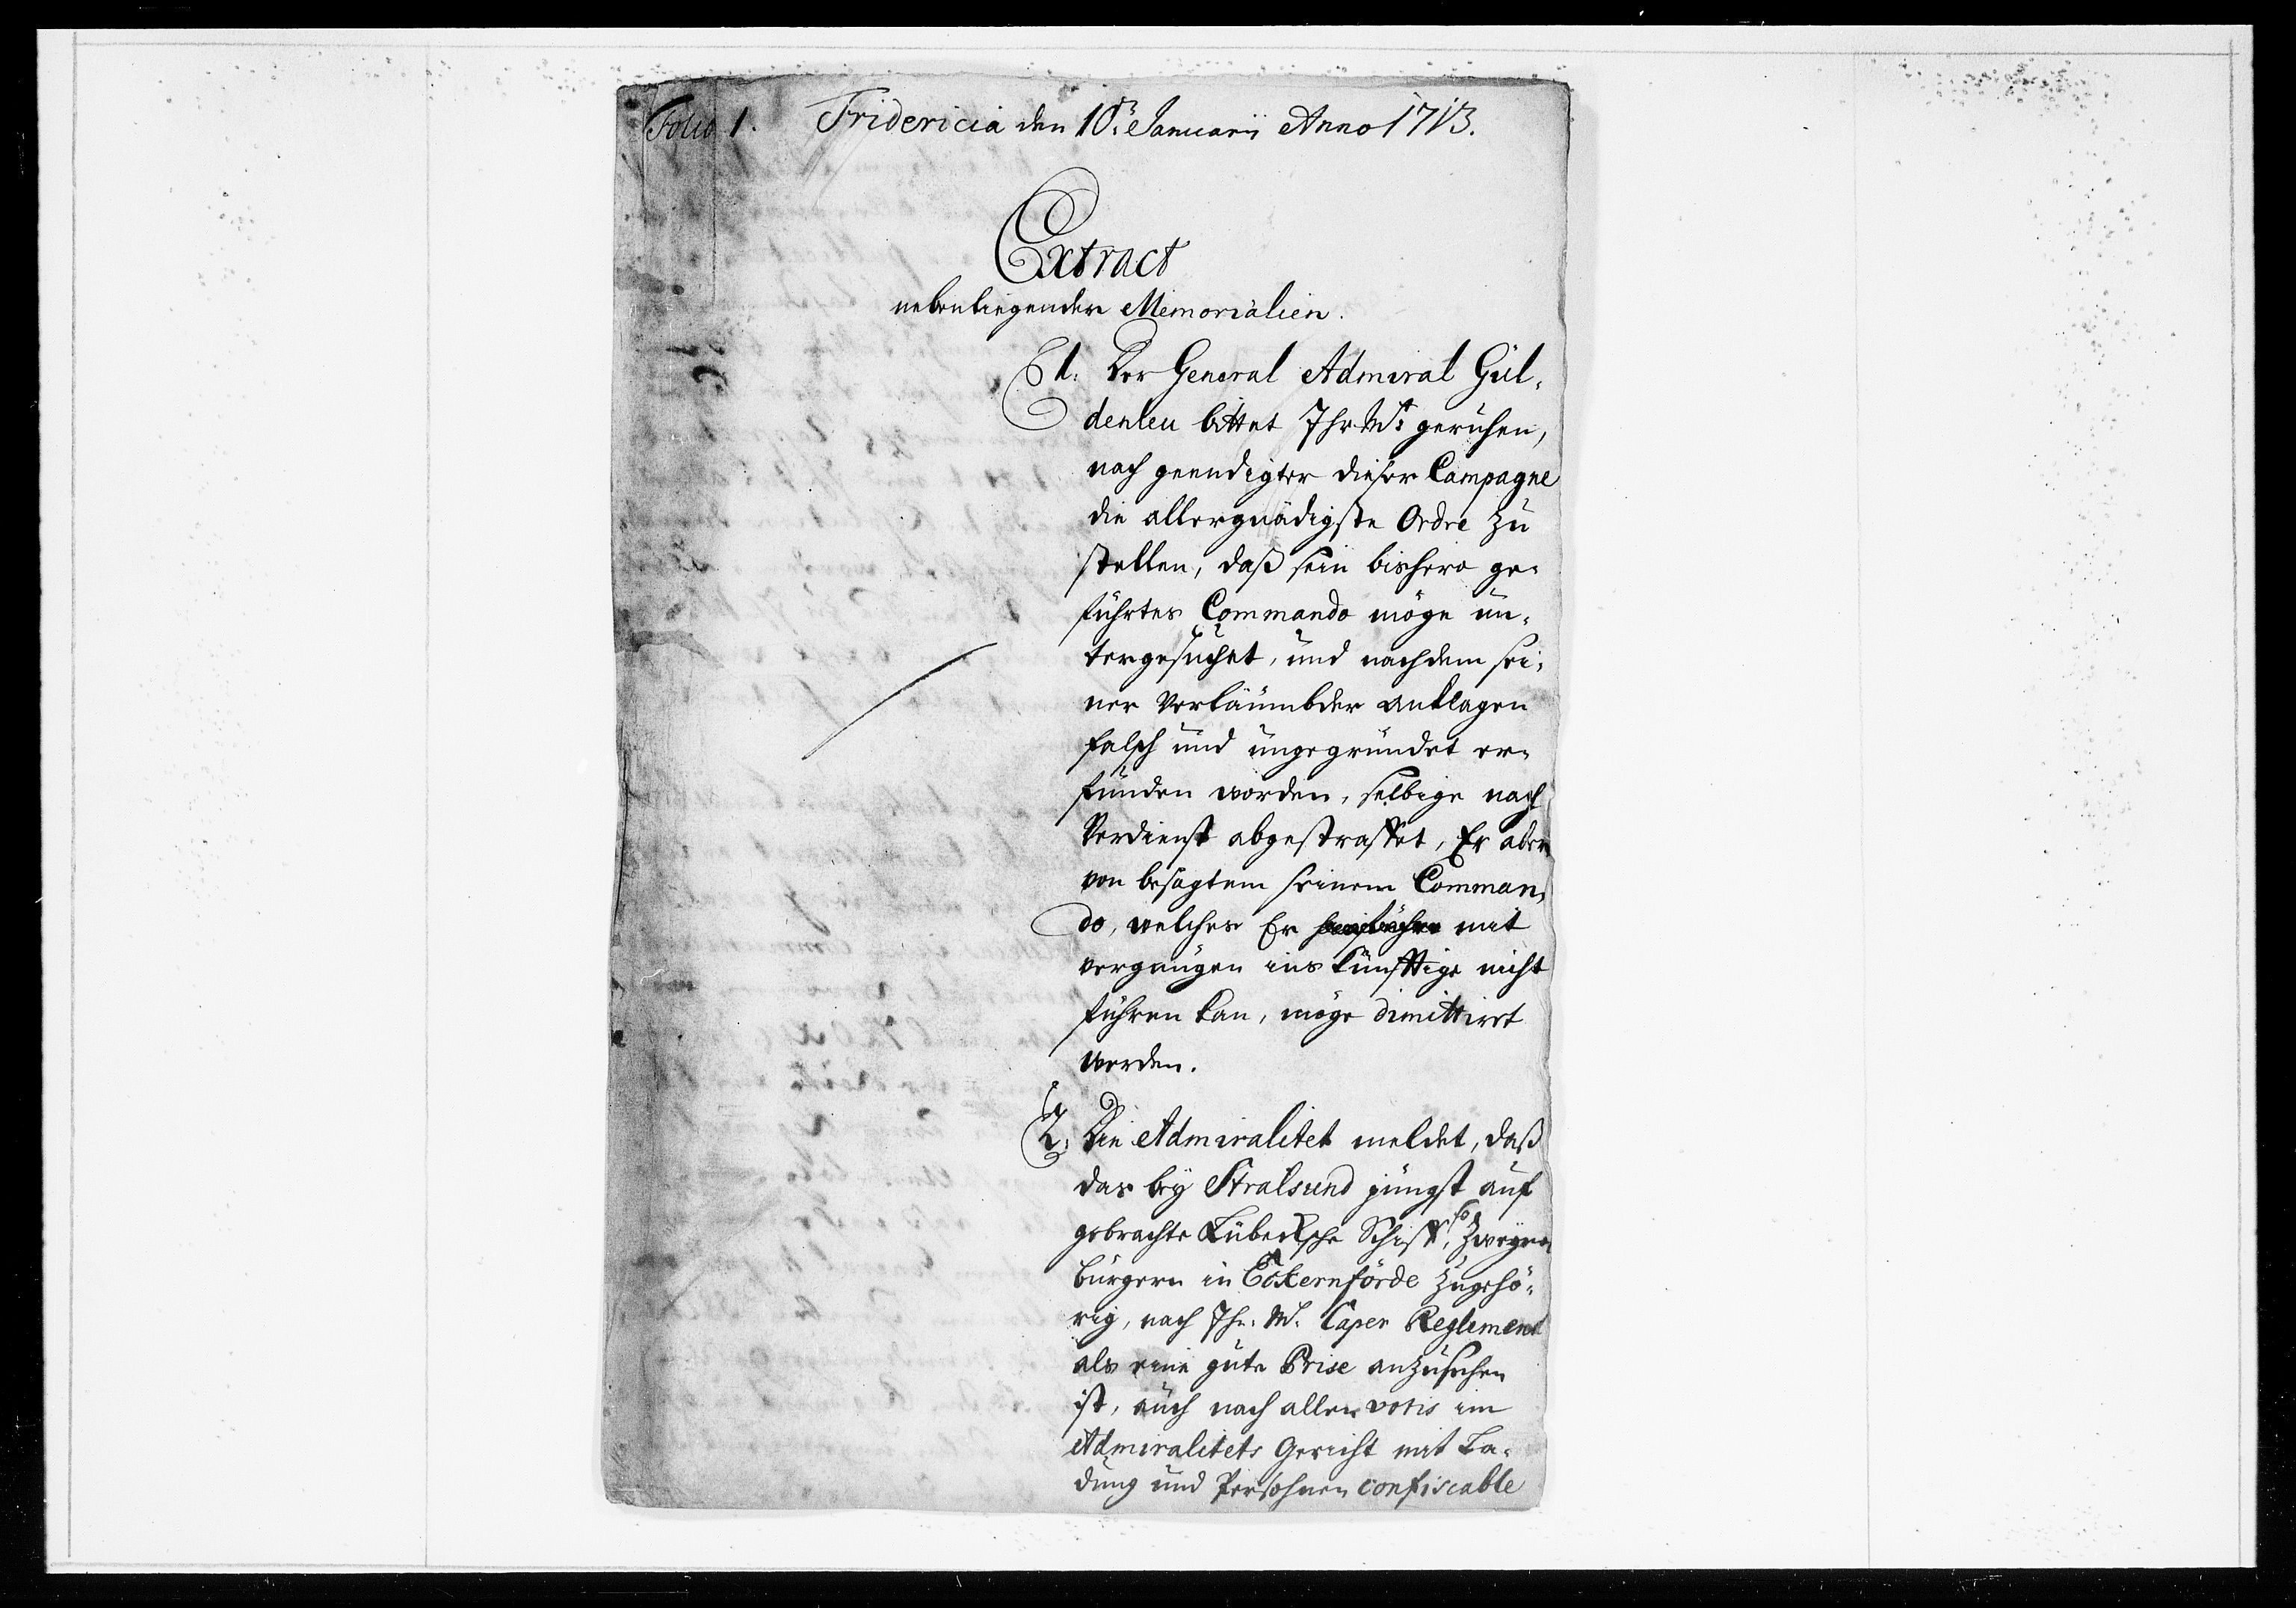 Folio 1. Fridericia den 10.n Januarii Anno 1713.
Extract
nebenliegender Memorialien.
1. Der General Admiral Gül-
denleu bittet Ihr Mt: geruhen,
nach geendigter dieser Campagne
die allergnädigste Ordre zu
stellen, daß sein bishero ge-
führtes Commando möge un-
tergesuchet, und nachdem sei-
ner Verläumbder anklagen
falsch und ungegründet er-
funden worden, selbige nach
Verdienst abgestraffet, Er aber
von besagtem seinem Comman-
do, welches Er mit
vergnügen ins künfftige nicht
führen kan, möge dimittiret
werden.
2. Die Admiralitet meldet, daß
das bey Stralsund jüngst auf
gebrachte Lübecksche Schiff, so zweyen
bürgern in Eckernförde zugehö-
rig, nach Ihr. Mt. Caper Reglement
als eine gute Prise anzusehen
ist, auch nach allen votis im
Admiralitets Gericht mit La-
dung und Persohnen confiscable